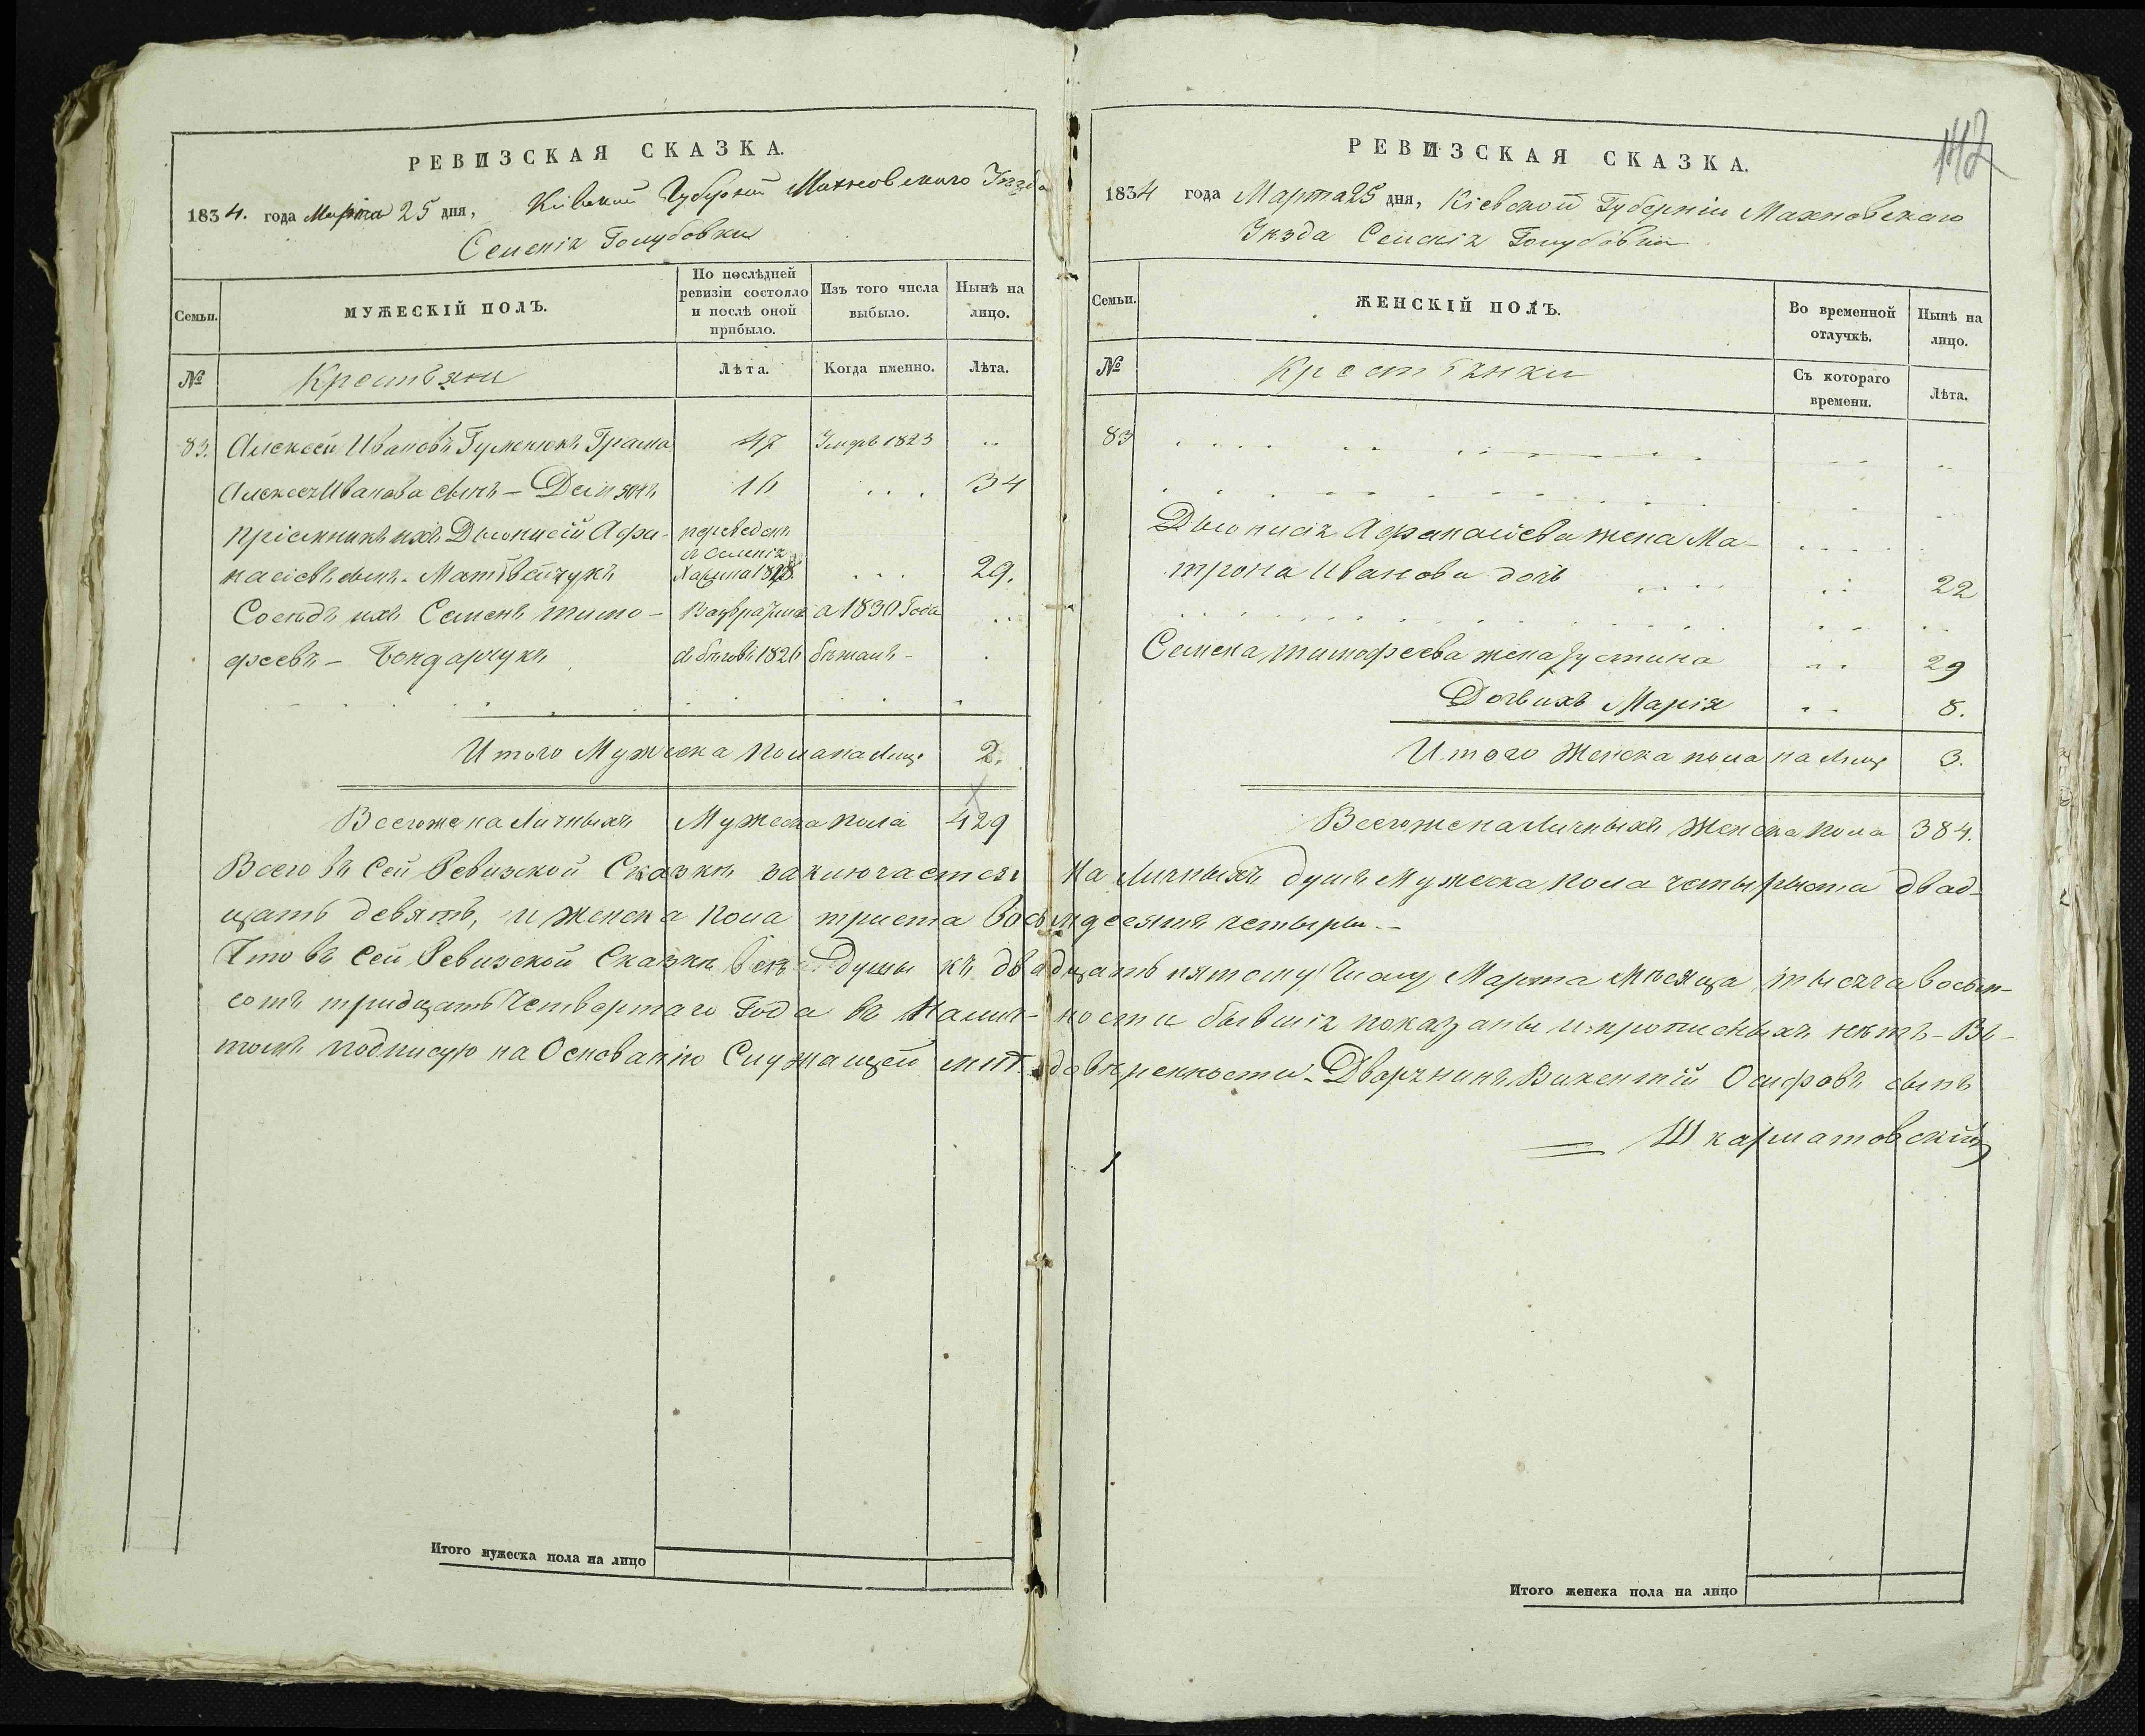 РЕВИЗСКАЯ СКАЗКА.
1834. года Марта 25 дня, Кіевской Губерніи Махновскаго Уѣзда
Селенія Голубовки
Семьи.
МУЖЕСКІЙ ПОЛЪ.
По послѣдней ревизіи состояло и послѣ оной прибыло.
Изъ того числа выбыло.
Нынѣ на лицо.
№
Крестьяни
Лѣта.
Когда именно.
Лѣта.
83. Алексей Ивановъ Гуменюкъ Грама 47 Умеръ 1823
Алексея Иванова сынъ - 16 34
Пріемникъ ихъ Діонисій Афа- переведенъ
изъ селенія
насіевъ сынъ - Матвейчукъ 1828 29.
Соседъ ихъ Семенъ Тимо- а 1830 Года
феевъ - Бондарчукъ 1826 бежалъ -
Итого Мужеска пола на Лицо 2.
Всего же на Личныхъ Мужеска пола 429
РЕВИЗСКАЯ СКАЗКА.
142
1834 года Марта 25 дня, Кіевской Губерніи Махновскаго
Уѣзда Селенія Голубовки
Семьи.
ЖЕНСКІЙ ПОЛЪ.
Во временной отлучкѣ.
Нынѣ на лицо.
№
Крестьянки
Съ котораго времени.
Лѣта.
83
Діонисія Афанасіева жена Ма-
трона Иванова дочь 22
Семена Тимофеева жена Устина 29
Дочь ихъ Марія 8.
Итого Женска пола на Лицо 3.
Всего же на Личныхъ Женска пола 384.
Всего въ сей Ревизской Сказкѣ заключается на Личныхъ душъ Мужеска пола четыриста двад-
цать девять, и женска пола триста восемдесятъ четыры. -
Что въ сей Ревизской Сказкѣ всѣ души къ двадцать пятому Числу Марта Мѣсяца тысяча восем-
сотъ тридцать Четвертаго Года въ Налич- ности бывшія показаны и прописныхъ нѣтъ - Въ
томъ подписую на Основанію Служащей мнѣ довѣренности - Дворянинъ Викентій Осифовъ сынъ
Шкарматовскій
Итого мужеска пола на лицо
Итого женска пола на лицо